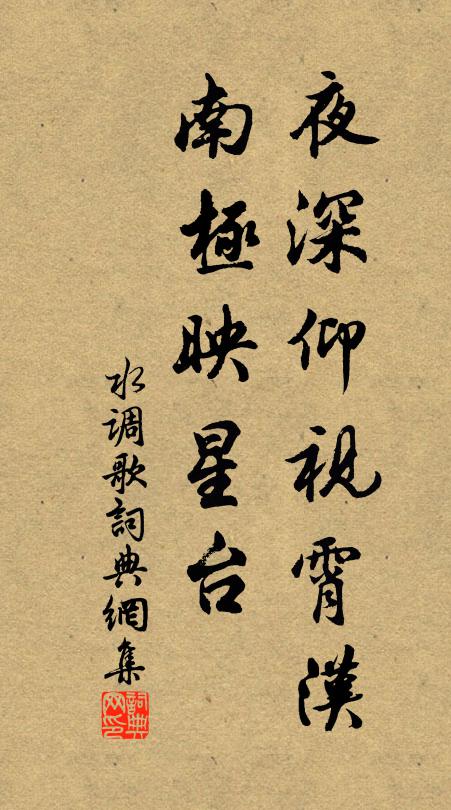 夜深仰視霄漢
南極映星台
水调歌詞典網集
詞典网印